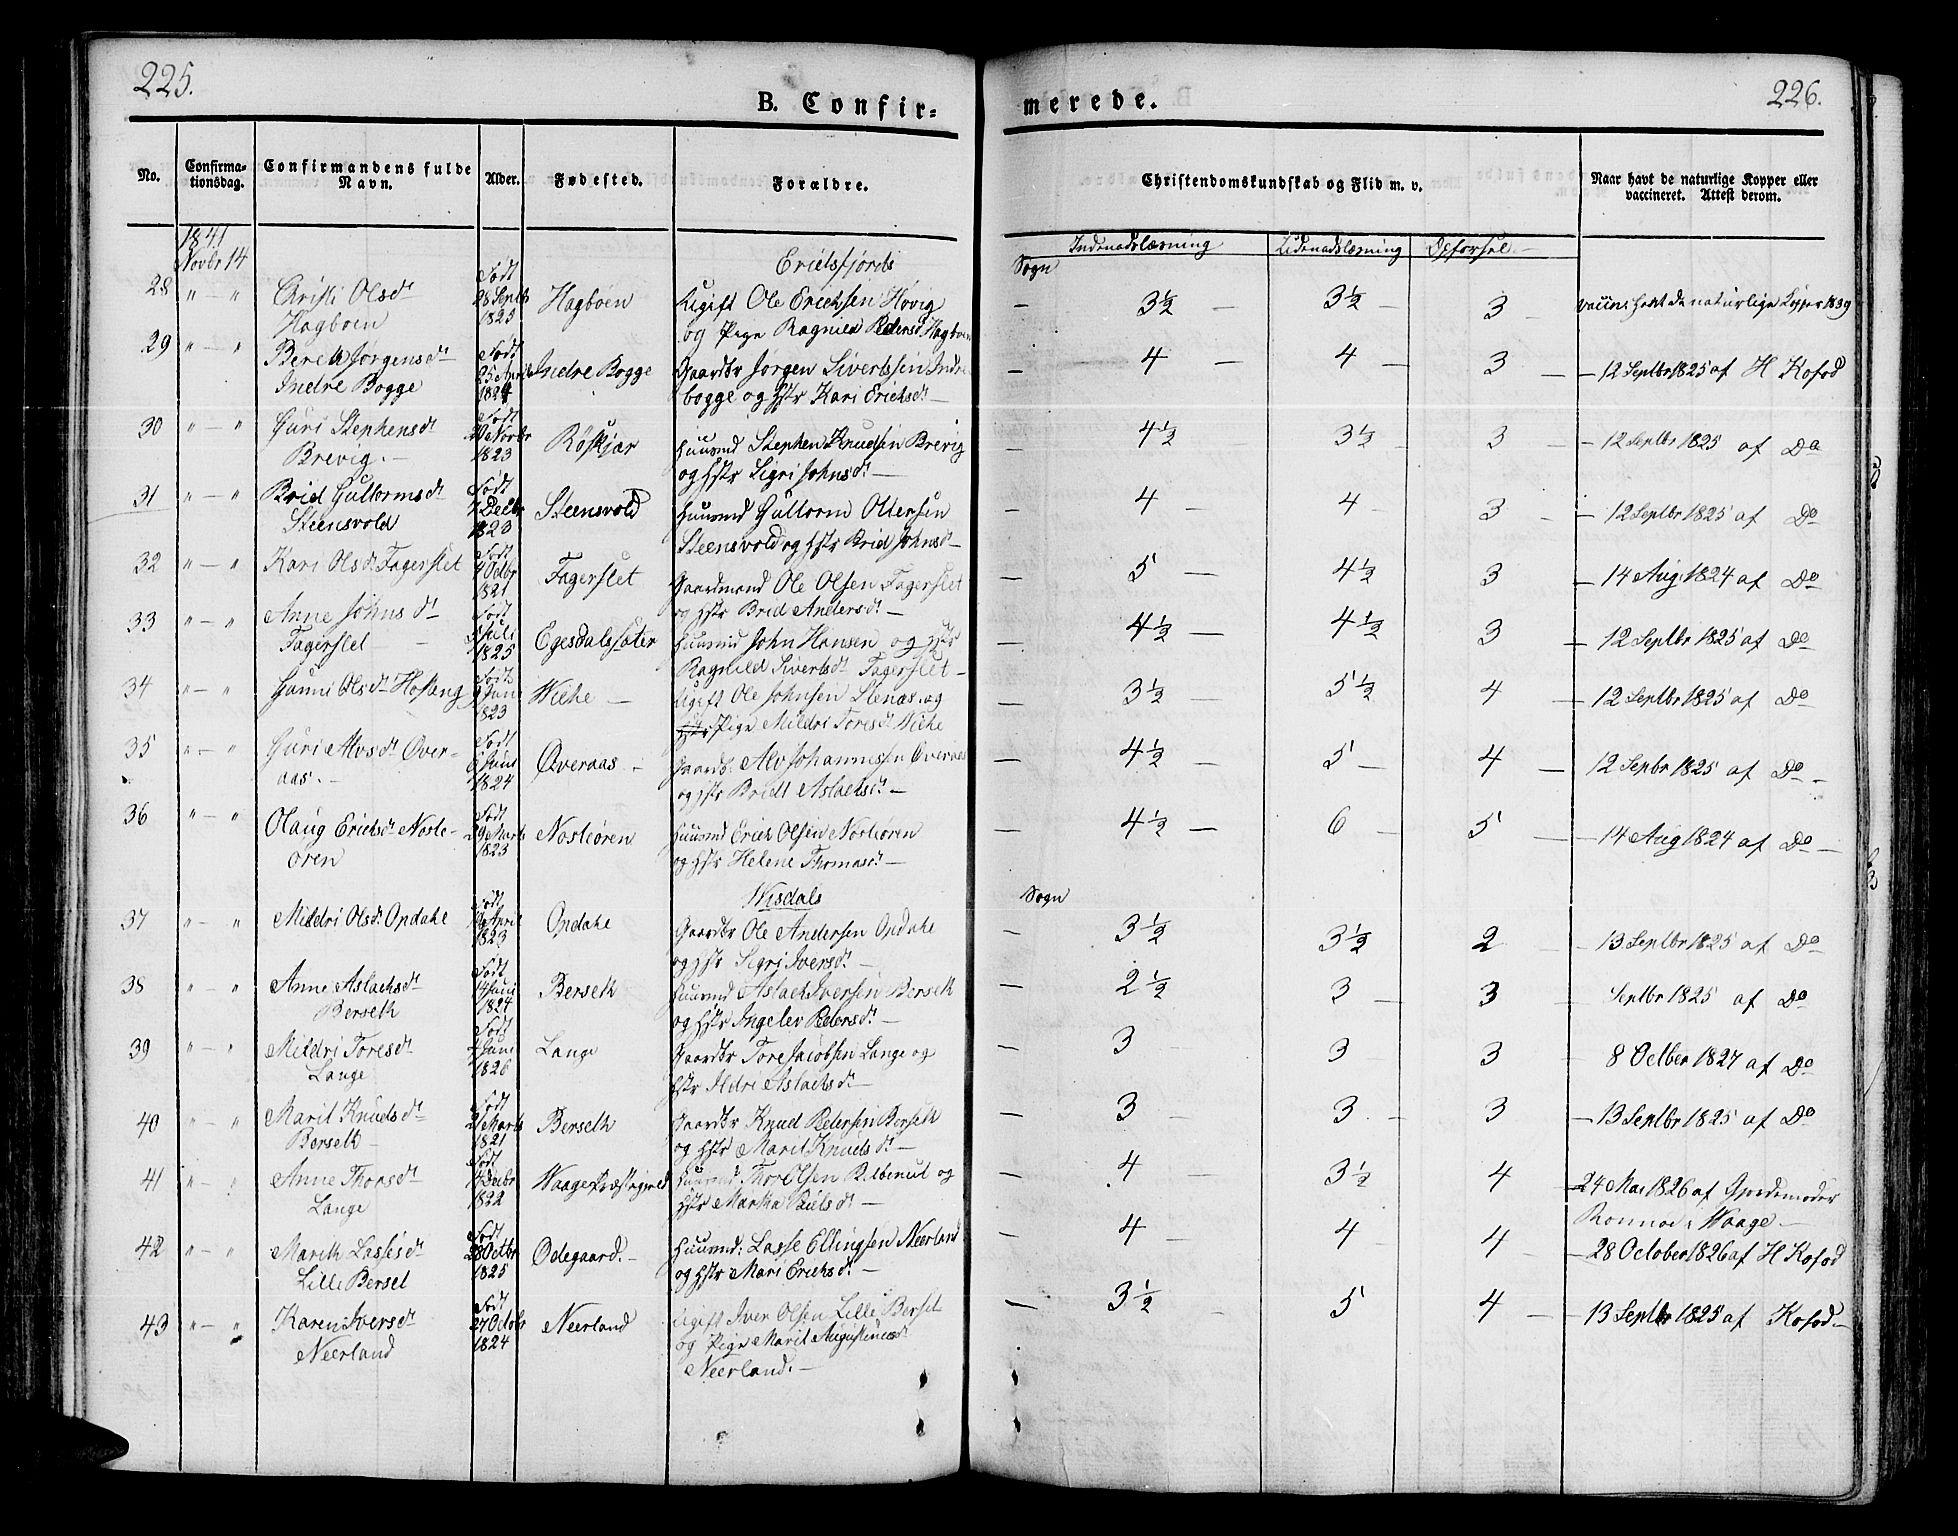 225.
B. Confir=
merede.
226.
No.
Confirma-
tionsdag.
Confirmandens fulde
Navn.
Alder.
Fødested.
Forældre.
Christendomskundskab og Flid m. v.
Naar havt de naturlige Kopper eller
vaccineret. Attest derom.
Indenadslæsning
Udenadslæsning
Opførsel
1841
Novbr 14
Erietsfjords
Sogn
28 " — " Christi Olsd Hagboen Født 28 Septb 1825 Hagboen Ugift Ole Erichsen Hovig
og Pige Ragnild Pedersd. Hagboen
— 3½ — 3½ — 3 — vacin: havt de naturlige Kopper 1839
29 " — " Jørgensdt Indre Bogge Født 25 April 1824 Indre Bogge Gaardbr Jørgen Sivertsen Indre
bogge og Hstr Kari Erichsdt —
— 4 — 4 — 3 — 12 Septbr 1825 af H Kofod
30 " — " Guri Stephensdt Brevig. — Født Novbr 1823 Röskjær Huusmd Stephen Knudsen Brevig
og Hstr Sigri Johnsdt —
— 4½ 3½ — 3 — 12 Septbr 1825 af Do
31 " — " Brid Guttormsdt Steensvold Født 7 Decbr 1823 Steensvold Huusmd Guttorm Ottersen
Steensvold og Hstr Brid Johnsdt —
— 4 — 4 — 3 — 12 Septbr 1825 af Do
32 " — " Kari Olsdt Fagerslet Født 4 Octbr 1821 Fagerslet Gaardmand Ole Olsen Fagerslet
og Hstr Brid Andersdt —
— 5 — 4½ 3 — 14 Aug 1824 af Do
33 " — " Anne Johnsdt Fagerslet — Født Juli 1825 Egesdalssæter Huusmd John Hansen og Hstr
Ragnild Sivertsdt Fagerslet —
— 4½ — 4½ 3 — 12 Septbr 1825 af Do
34 " — " Gunni Olsdt Hofang Født Juni 1823 Wiehe — Ugift Ole Johnsen Stenæs. og
Pige Mildri Toresdt Wiehe
— 3½ — 5½ 4 — 12 Septbr 1825 af Do
35 " — " Guri Alvsdt Over-
aas. — Født 6 Juni 1824 Øveraas — Gaardb: Alv Johannissen Øveraas
og Hstr Bridt Aslachsdt. —
— 4½ 5 — 4 — 12 Sepbr 1825 af Do —
36 " — " Olaug Erichsdt Noste-
ören Født 29 Marts 1823 Nosteören Huusmd Erich Olsen Nosteören
og Hstr Helene Thomasdt —
— 4½ — 6 — 5 — 14 Aug 1824 af Do —
Wisdals
Sogn
37 " — " Mildri Olsdt Opdahe Født 19 April 1823 Opdahe Gaardbr Ole Andersen Opdahe
og Hstr Sigri Iversdt —
— 3½ 3½ — 2 — 13 Septbr 1825 af Do
38 " — " Anne Aslachsdt Berseth Født 14 Juni 1824 Berseth Huusmd Aslach Iversen Berseth
og Hstr Ingelev Pedersdt. —
— 2½ 3 — 3 Septbr 1825 af Do
39 " — " Mildri Toresdt Lange Født Juni 1826 Lange Gaardbr Tore Jacobsen Lange og
Hstr Ildri Aslachsdt —
— 3 3 3 — 8 Octber 1827 af Do
40 " — " Marit Knudsdt Berseth — Født 21 Marts 1821 Berseth Gaardbr Knud Pedersen Berseth
og Hstr Marit Knudsdt —
— 3 — 3 — 3 — 13 Septbr 1825 af Do
41 " — " Anne Thorsdt Lange Født Decbr 1822 Waage Præstegield Huusmd Thor Olsen og
Hstr Martha Poulsdt —
— 4 — 3½ 4 — 24 Mai 1826 af Gjordemoder
Ronnoe i Waage —
42 " — " Marith Lassesdt Lille Berset Født 28 Octbr 1825 Ödegaard. — Huusmd: Lasse Ellingsen Neerland
og Hstr Mari Erichsdt —
— 4 — 4 — 4 — 28 October 1826 af H Kofod
43 " — " Karen Iversdt Neerland Født 27 Octobr 1824 Neerland Ugift Iver Olsen Lille Berset
og Pige Marit Augustinusdt
Neerland. —
— 3½ — 5 — 4 — 13 Septbr 1825 af Kofod —